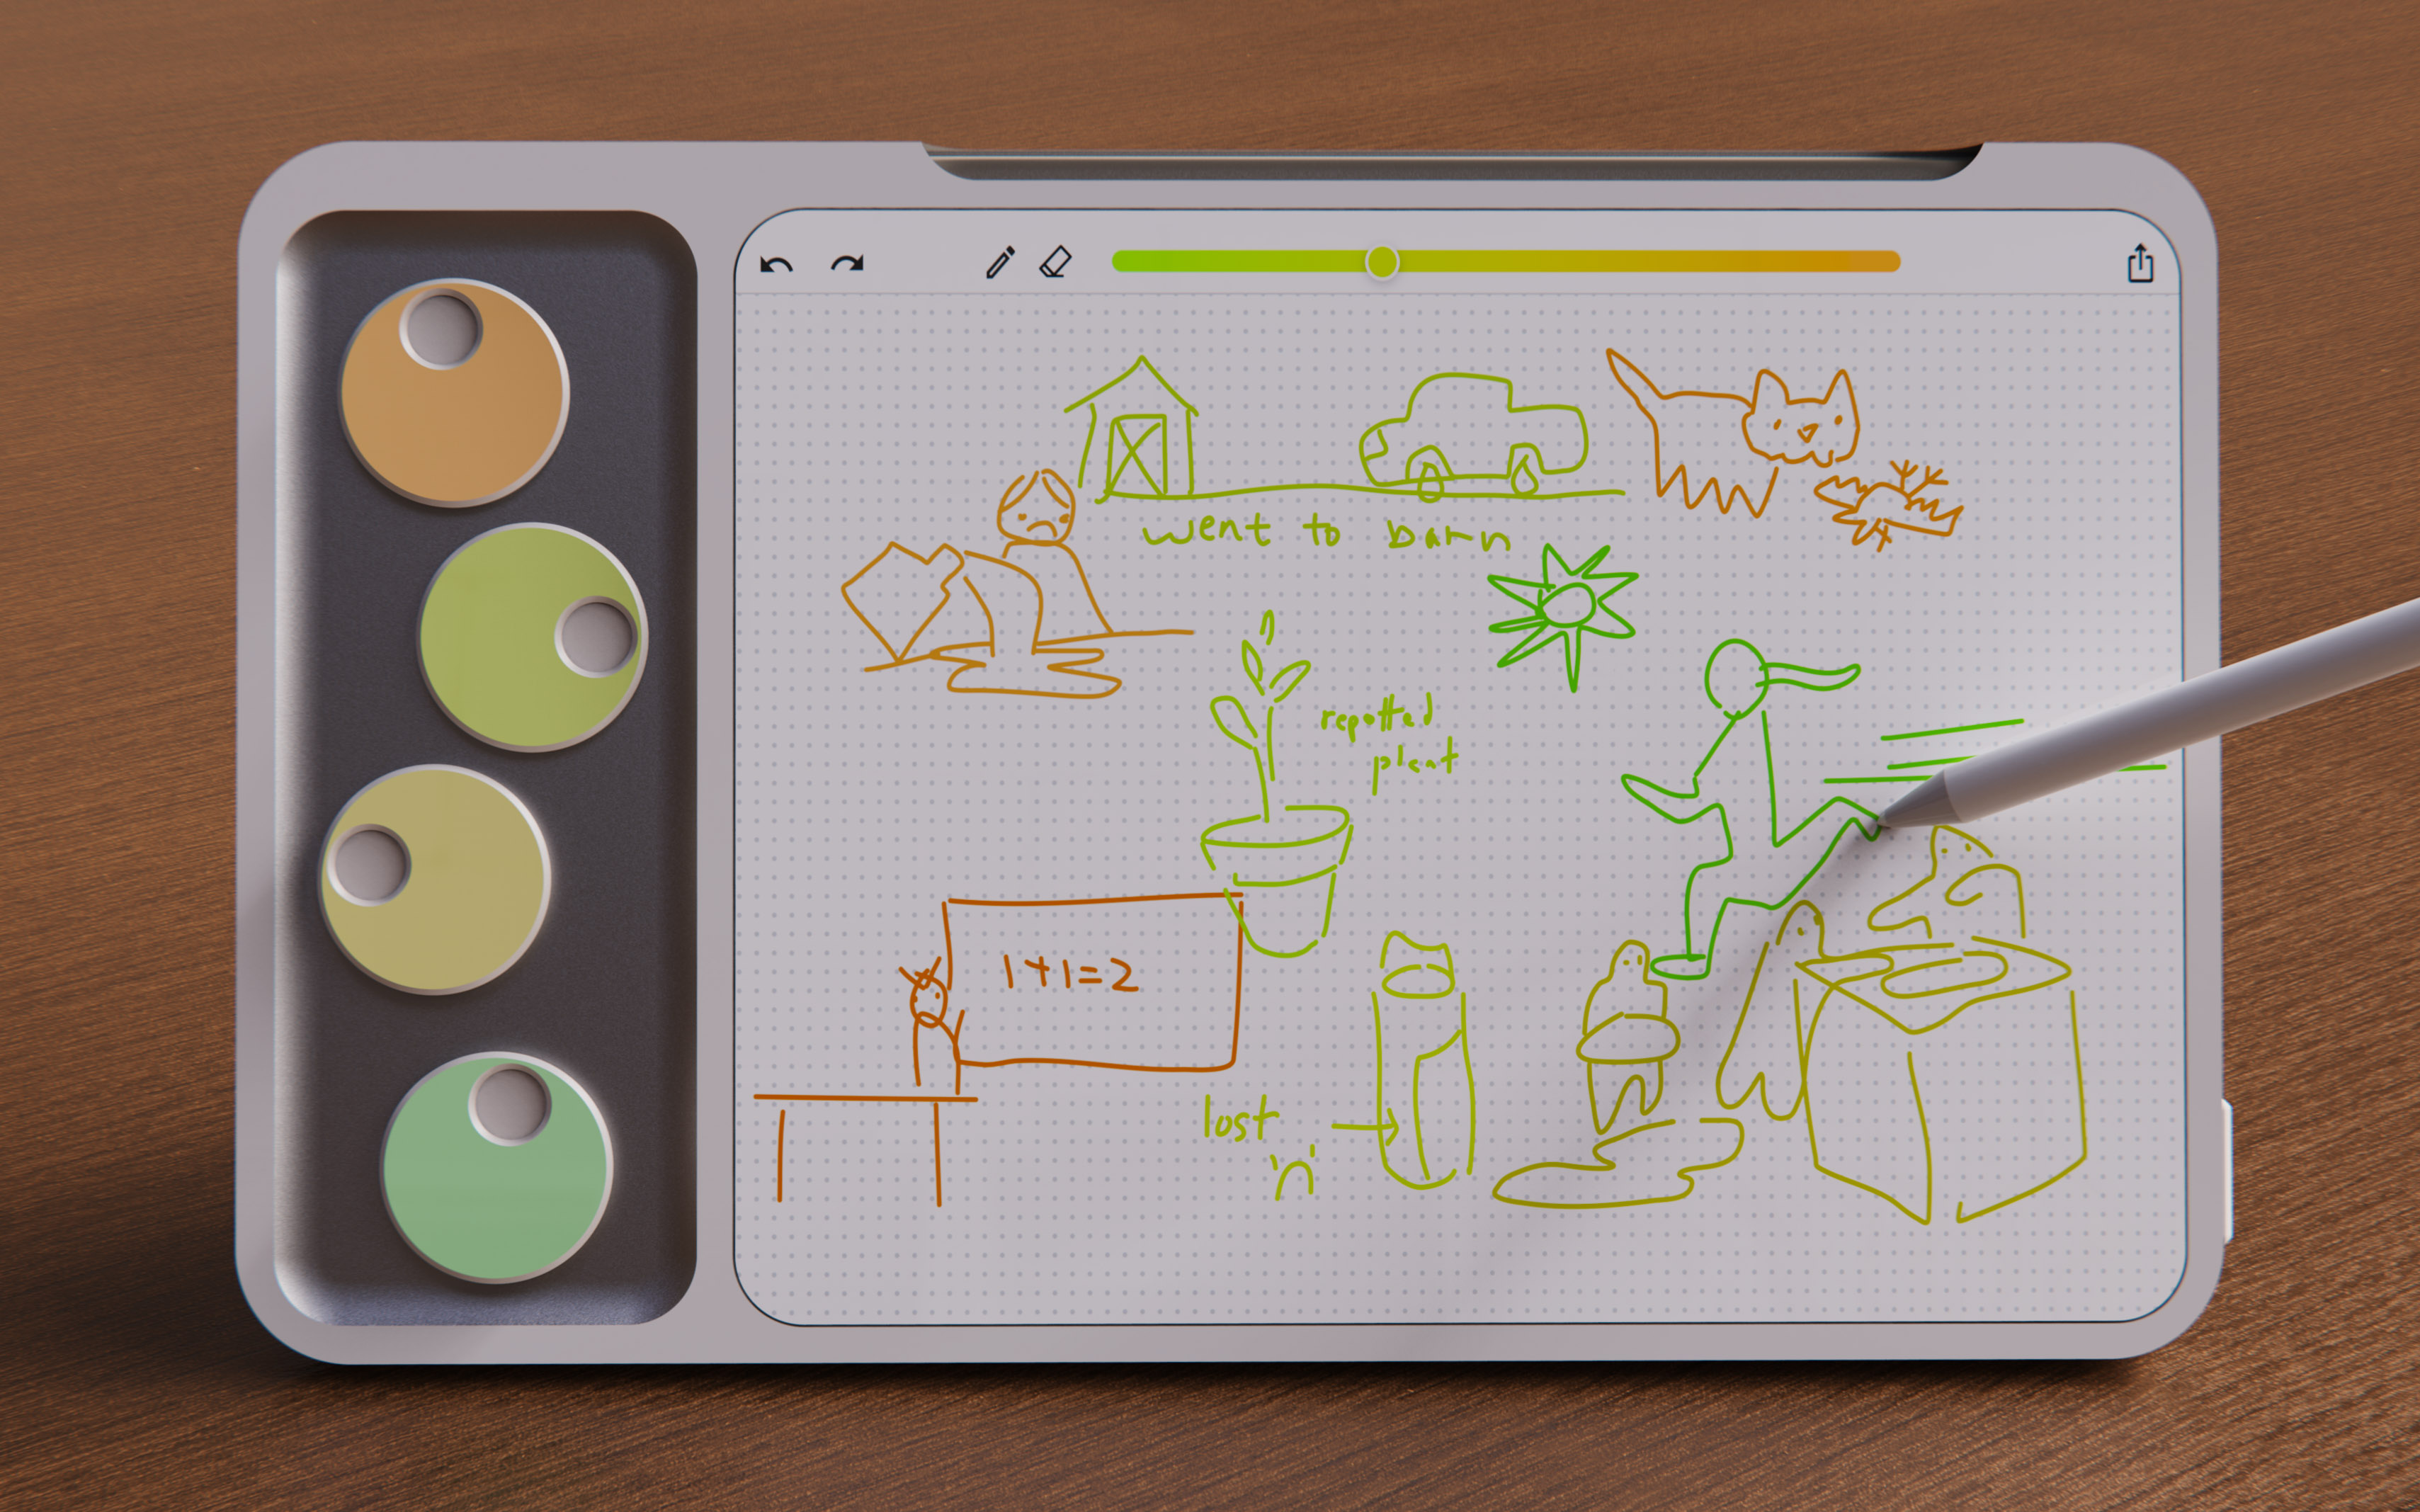 went to barn
repotted
plant
1+1=2
lost